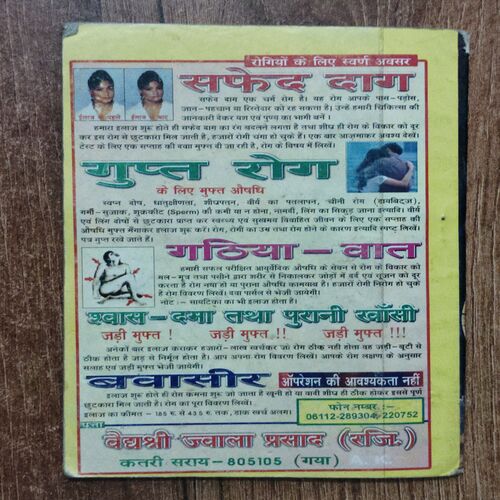 रोगियों के लिए स्वर्ण अवसर
सफेद दाग
इलाज से पहले
इलाज के बाद
सफेद दाग एक चर्म रोग है। यह रोग आपके पास-पड़ोस,
जान-पहचान या रिश्तेदार को रह सकता है। उन्हें हमारी चिकित्सा की
जानकारी देकर यश एवं पुण्य का भागी बनें।
हमारा इलाज शुरू होते ही सफेद दाग का रंग बदलने लगता है तथा शीघ्र ही रोग के विकार को दूर
कर इस रोग से छुटकारा मिल जाती है, हजारों रोगी चंगा हो चुके हैं। एक बार आजमाकर अवश्य देखें।
टेस्ट के लिए एक सप्ताह की दवा मुफ्त दी जा रही है, रोग के विषय में लिखें।
गुप्त रोग
के लिए मुफ्त औषधि
स्वप्न दोष, धातुक्षीणता, शीघ्रपतन, वीर्य का पतलापन, चीनी रोग (डायबिट्ज),
गर्मी-सुजाक, शुक्रकीट (Sperm) की कमी या न होना, नामर्दी, लिंग का सिकुड़ जाना इत्यादि। वीर्य
एवं लिंग दोषों से छुटकारा प्राप्त कर स्वस्थ्य एवं सुखमय विवाहित जीवन के लिए एक सप्ताह की
औषधि मुफ्त मँगाकर इलाज शुरू करें। रोग, रोगी का उम्र तथा रोग होने के कारण इत्यादि स्पष्ट लिखें।
पत्र गुप्त रखे जाते हैं।
गठिया-वात
हमारी सफल परीक्षित आयुर्वेदिक औषधि के सेवन से रोग के विकार को
मल-मूत्र तथा पसीने द्वारा शरीर से निकालकर जोड़ों में दर्द एवं सूजन को दूर
करता है रोग नया हो या पुराना औषधि कामयाब है। हजारों रोगी निरोग हो चुके
हैं रोग विवरण लिखें। दवा पार्सल से भेजी जायेगी।
नोट :- सायटिका का भी इलाज होता है।
श्वास-दमा तथा पुरानी खाँसी
जड़ी मुफ्त ! जड़ी मुफ्त !! जड़ी मुफ्त !!!
अनेकों बार इलाज कराकर हजारों-लाख खर्चकर जो रोग ठीक नहीं होता वह जड़ी-बूटी से
ठीक होता है जड़ से निर्मूल होता है। आप अपना रोग विवरण लिखें। आपके रोग लक्षण के अनुसार
सलाह एवं जड़ी मुफ्त भेजी जायेगी।
बवासीर ऑपरेशन की आवश्यकता नहीं
इलाज शुरू होते ही रोग कमना शुरू हो जाता है खूनी हो या वादी शीघ्र ही ठीक होकर इससे पूर्ण
छुटकारा मिल जाती है। रोग का पूरा विवरण लिखें।
इलाज का कीमत - 185 रु. से 435 रु. तक, डाक खर्च अलग।
फोन नम्बर :-
06112-289304, 220752
पता
वैद्यश्री ज्वाला प्रसाद (रजि.)
कतरी सराय-805105 (गया)